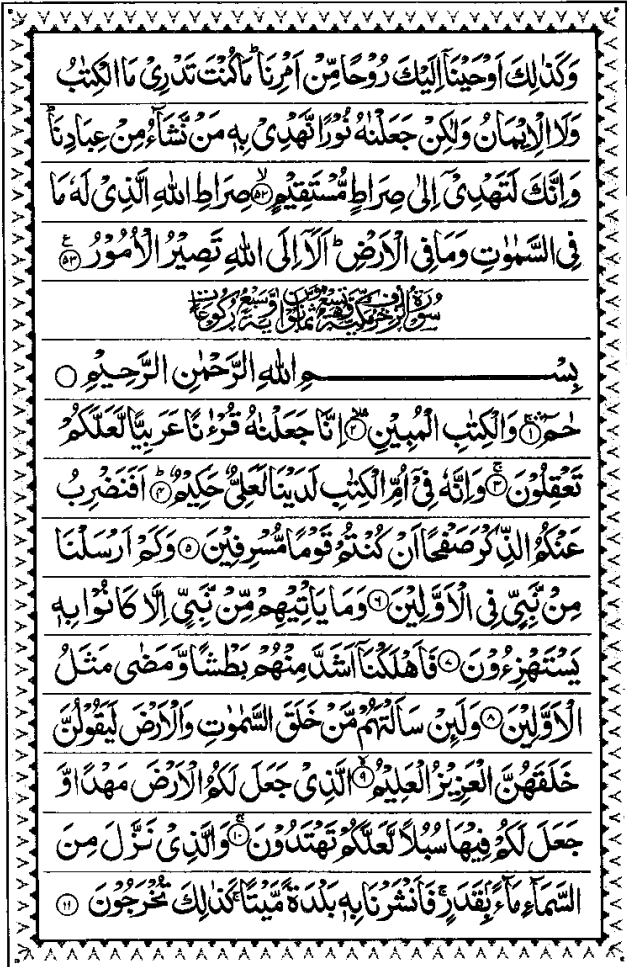 وَكَذٰلِكَ اَوْحَيْنَاۤ اِلَيْكَ رُوْحًا مِّنْ اَمْرِنَا ؕ مَا كُنْتَ تَدْرِىْ مَا الْكِتٰبُ
وَلَا الْاِيْمَانُ وَلٰكِنْ جَعَلْنٰهُ نُوْرًا نَّهْدِىْ بِهٖ مَنْ نَّشَآءُ مِنْ عِبَادِنَا ؕ
وَاِنَّكَ لَتَهْدِىْۤ اِلٰى صِرَاطٍ مُّسْتَقِيْمٍ ۙ‏﴿۵۲﴾ صِرَاطِ اللّٰهِ الَّذِىْ لَهٗ مَا
فِى السَّمٰوٰتِ وَمَا فِى الْاَرْضِ ؕ اَلَاۤ اِلَى اللّٰهِ تَصِيْرُ الْاُمُوْرُ ﴿۵۳﴾ ع
سُوْرَةُ الزُّخْرُفِ مَكِّيَّةٌ وَّهِىَ تِسْعٌ وَّثَمَانُوْنَ اٰيَةً وَّسَبْعُ رُكُوْعَاتٍ
بِسْمِ اللّٰهِ الرَّحْمٰنِ الرَّحِيْمِ ○
حٰمٓ ۛۚ ﴿۱﴾ وَالْكِتٰبِ الْمُبِيْنِ ۛۙ ﴿۲﴾ اِنَّا جَعَلْنٰهُ قُرْءٰنًا عَرَبِيًّا لَّعَلَّكُمْ
تَعْقِلُوْنَ ۚ ﴿۳﴾ وَاِنَّهٗ فِىْۤ اُمِّ الْكِتٰبِ لَدَيْنَا لَعَلِىٌّ حَكِيْمٌ ؕ ﴿۴﴾ اَفَنَضْرِبُ
عَنْكُمُ الذِّكْرَ صَفْحًا اَنْ كُنْتُمْ قَوْمًا مُّسْرِفِيْنَ ﴿۵﴾ وَكَمْ اَرْسَلْنَا
مِنْ نَّبِىٍّ فِى الْاَوَّلِيْنَ ﴿۶﴾ وَمَا يَاْتِيْهِمْ مِّنْ نَّبِىٍّ اِلَّا كَانُوْا بِهٖ
يَسْتَهْزِءُوْنَ ﴿۷﴾ فَاَهْلَكْنَاۤ اَشَدَّ مِنْهُمْ بَطْشًا وَّمَضٰى مَثَلُ
الْاَوَّلِيْنَ ﴿۸﴾ وَلَىِٕنْ سَاَلْتَهُمْ مَّنْ خَلَقَ السَّمٰوٰتِ وَالْاَرْضَ لَيَقُوْلُنَّ
خَلَقَهُنَّ الْعَزِيْزُ الْعَلِيْمُ ۙ ﴿۹﴾ الَّذِىْ جَعَلَ لَكُمُ الْاَرْضَ مَهْدًا وَّ
جَعَلَ لَكُمْ فِيْهَا سُبُلًا لَّعَلَّكُمْ تَهْتَدُوْنَ ۚ ﴿۱۰﴾ وَالَّذِىْ نَزَّلَ مِنَ
السَّمَآءِ مَآءًۢ بِقَدَرٍ ۚ فَاَنْشَرْنَا بِهٖ بَلْدَةً مَّيْتًا ۚ كَذٰلِكَ تُخْرَجُوْنَ ﴿۱۱﴾